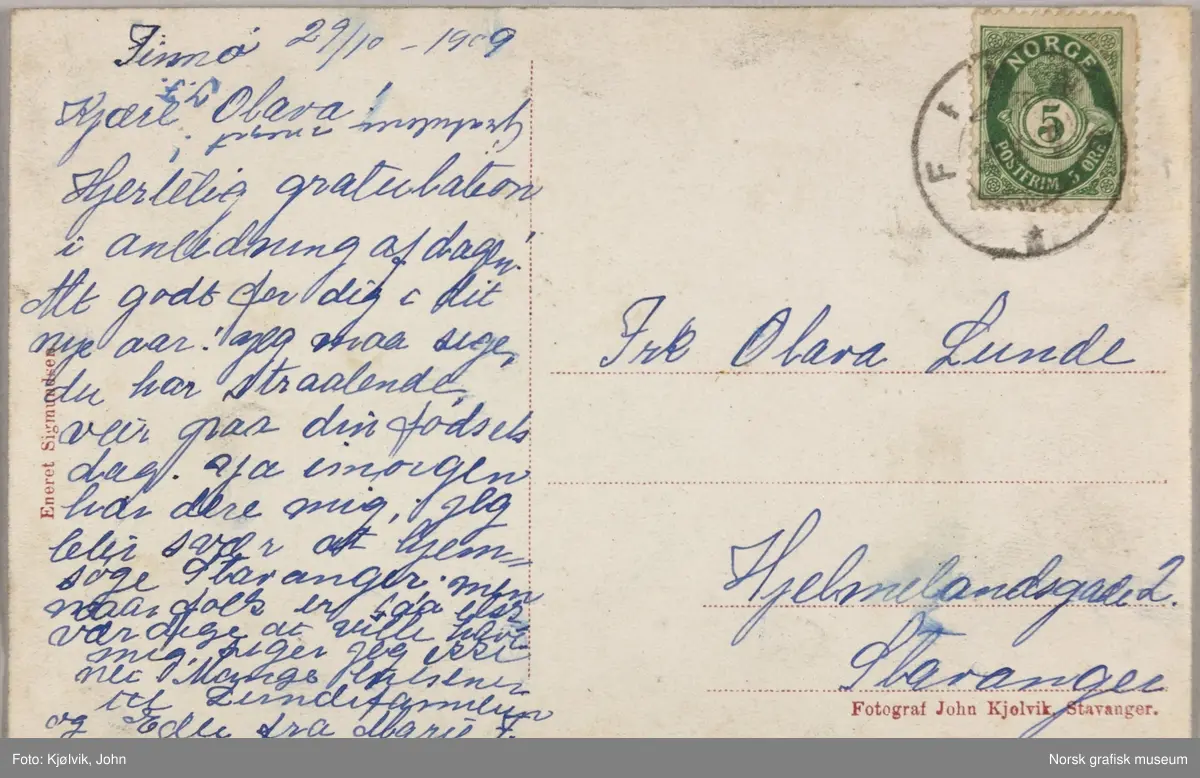 Finnø 29/10 - 1909
Kjære Olava!
Hjertelig gratulation
i anledning af dagen!
Alt godt for dig i dit
nye aar! Jeg maa sige,
du har straalende
veir paa din fødsels
dag. Ja imorgen
har dere mig, jeg
bleir svær at hjem=
søge Stavanger. men
naar folk er saa elsk
værdige at ville have
mig, siger jeg ikke
nei. Mange hilsener
til Lundefamilien
og Edle fra Marie F.
Eneret Sigmundsen
NORGE
5
POSTFRIM 5 ØRE
FI
Frk Olava Lunde
Hjelmelandsgade 2.
Stavanger
Fotograf John Kjølvik, Stavanger.
Foto: Kjølvik, John
Norsk grafisk museum